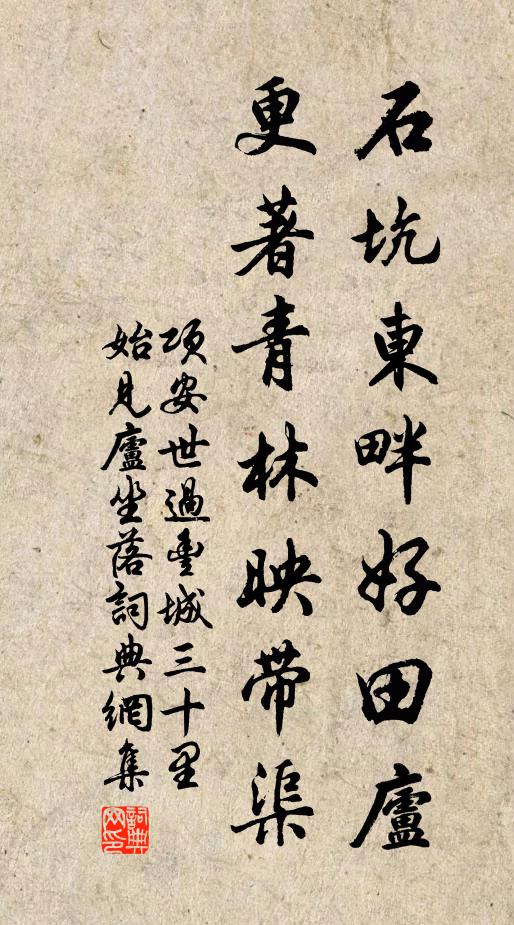 石坑東畔好田廬
更著青林映帶渠
項安世過豊城三十里
始見廬坐落詞典網集
詞典網印